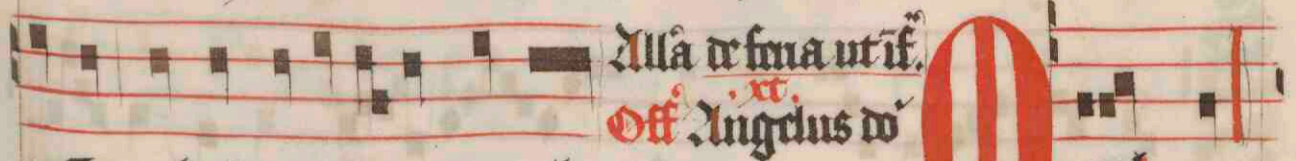 Alla de feria ut īf.
.xt.
Off Angelus do
O